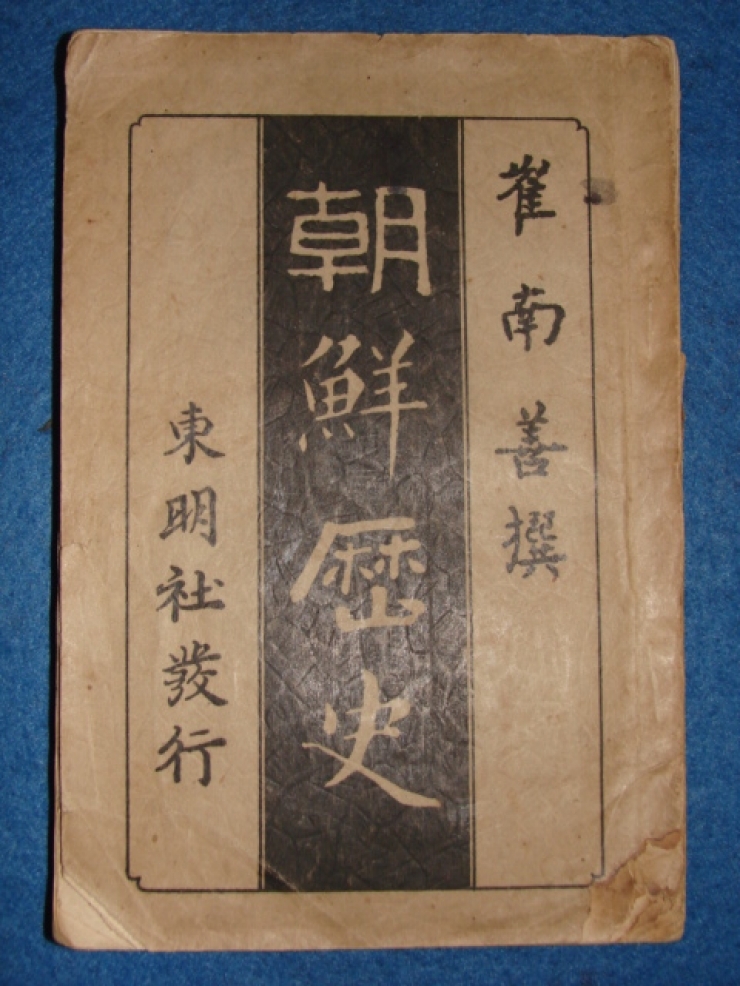 崔南善撰
朝鮮歴史
東明社發行